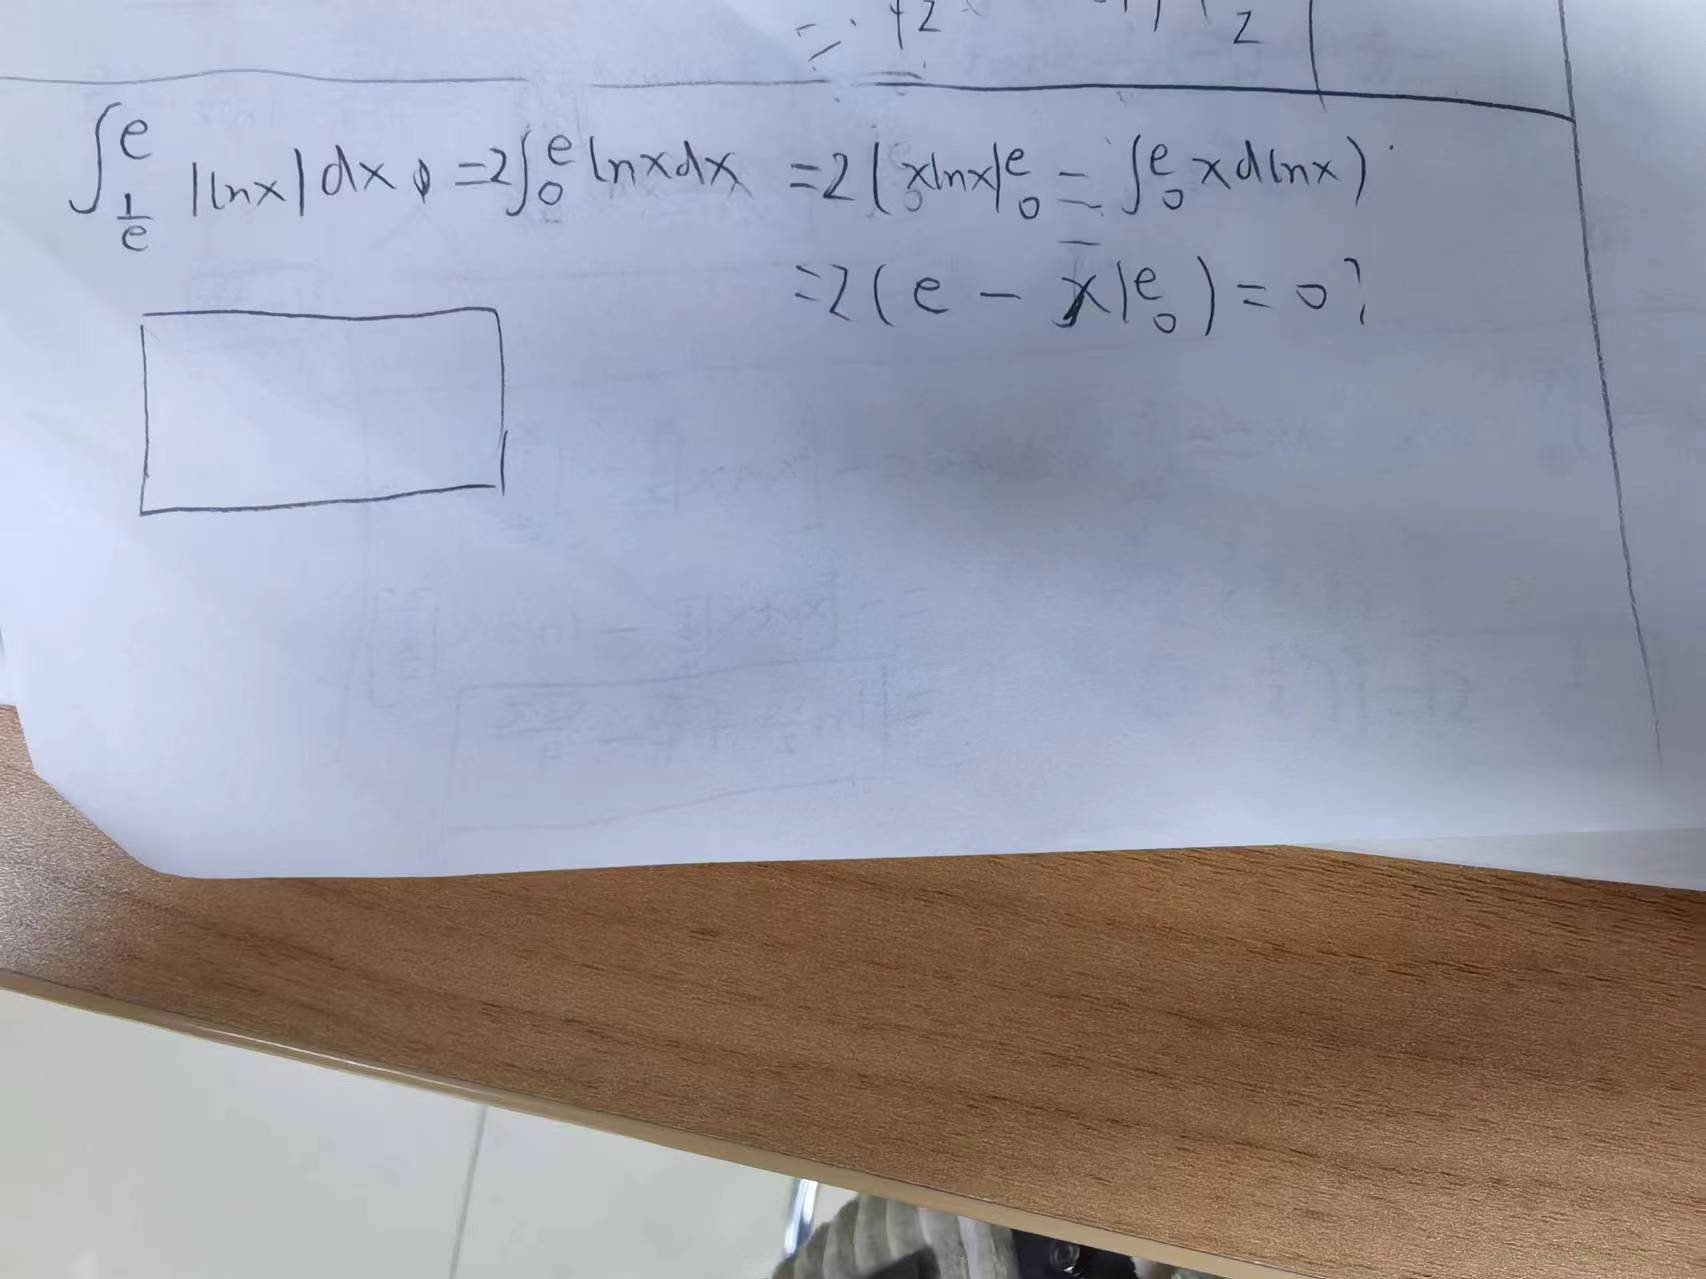 = 42 2
∫_{1/e}^{e} |lnx| dx = 2∫_0^e lnxdx = 2(xlnx|_0^e - ∫_0^e xdlnx)
= 2(e - x|_0^e) = 0?